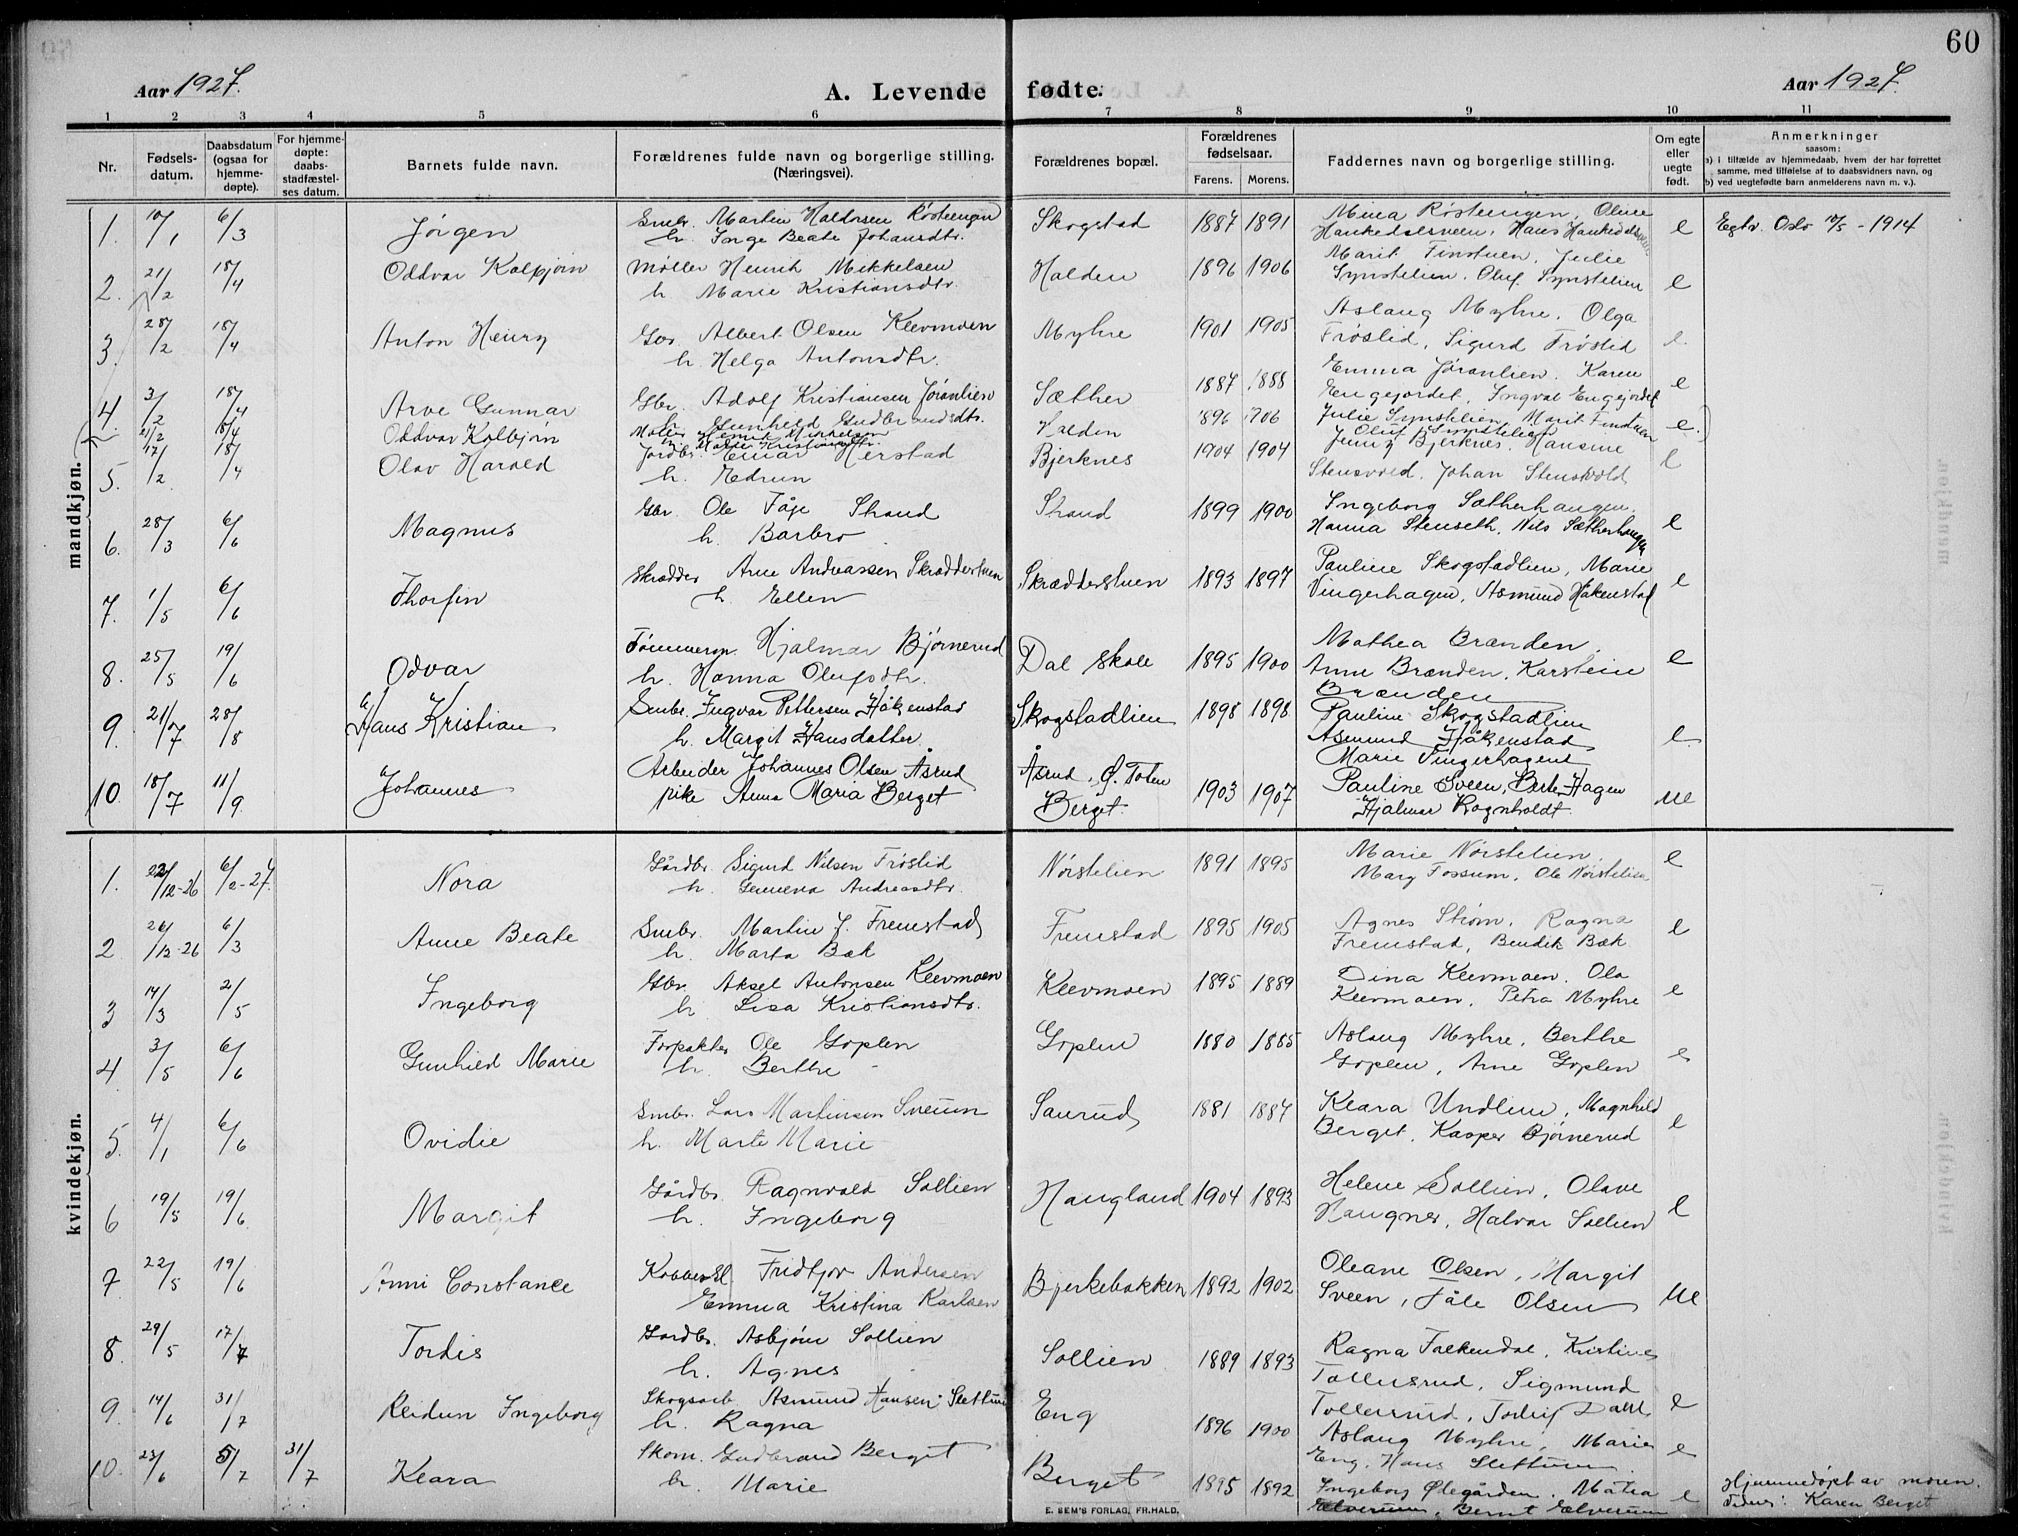 60
Aar 1927.
A. Levende fødte.
Aar 1927.
1 2 3 4 5 6 7 8 9 10 11
Nr.
Fødsels-
datum.
Daabsdatum
(ogsaa for
hjemme-
døpte).
For hjemme-
døpte:
daabs-
stadfæstel-
ses datum.
Barnets fulde navn.
Forældrenes fulde navn og borgerlige stilling.
(Næringsvei).
Forældrenes bopæl.
Forældrenes
fødselsaar.
Farens. Morens.
Faddernes navn og borgerlige stilling.
Om egte
eller
uegte
født.
Anmerkninger
saasom:
a) i tilfælde av hjemmedaab, hvem der har forrettet
samme, med tilføielse af to daabsvidners navn, og
b) ved uegtefødte barn anmelderens navn m. v.).
mandkjøn.
1. 10/1 6/3 Jørgen Smbr. Martin Haldorsen Røstengen Skogstad 1887 1891 Mina Røstengen, Oline e Egtv. Oslo - 1914
h. Inge Beate Johansdtr. Hankedalsveen, Hans
2. 21/2 18/4 Oddvar Kolbjørn Møller Henrik Mikkelsen Halden 1896 1906 Marit Finstuen, Julie
h. Marie Kristiansdtr. Synstelien, Oluf Synstelien e
3. 28/2 18/4 Anton Henry Gbr. Albert Olsen Klevmoen Myhre 1901 1905 Aslaug Myhre, Olga
h. Helga Antonsdtr. Frøslid, Sigurd Frøslid e.
4. 3/2 18/4 Arve Gunnar Gbr. Adolf Kristiansen Jøranlien Sæther 1887 1888 Emma Jøranlien, Karen e
h. Gunhild Gudbrandsdtr. Engejordet, Ingval Engejordet
21/2 18/4 Oddvar Kolbjørn Møller Henrik Mikkelsen Halden 1896 1906 Julie Synstelien, Marit Finstuen e.)
h. Marie Kristiansdtr. Oluf Synstelien
5. 17/2 18/4 Olav Harald Jordbr. Einar Herstad Bjerknes 1904 1904 Jenny Bjerknes, Hansine e
h. Edrun Stensvold, Johan Stensvold
6. 28/3 6/6 Magnus Gbr. Ole Tåje Strand Strand 1899 1900 Ingeborg Sætherhaugen,
h. Barbro Hanna Stenseth, Nils Sætherhaugen e
7. 1/5 6/6 Thorfin Skrædder Arne Andreassen Skrædderstuen Skrædderstuen 1893 1897 Pauline Skogstadlien, Marie e
h. Ellen Vingerhagen, Asmund Håkenstad
8. 25/5 19/6 Odvar Tømmerm. Hjalmar Bjørnerud Dal skole 1895 1900 Mathea Brænden, e
h. Hanna Olufsdtr. Anne Brænden, Karsten
Brænden
9. 21/7 28/8 Hans Kristian Smbr. Ingvar Pettersen Håkenstad Skogstadlien 1898 1898 Pauline Skogstadlien
h. Margit Hansdatter Asmund Håkenstad e.
Marie Vingerhagen
10. 18/7 11/9 Johannes Arbeider Johannes Olsen Åsrud Åsrud, Ø. Toten 1903 1907 Pauline Sveen, Berte Hagen ue
pike Anna Maria Berget Berget. Hjalmar Rognholdt.
kvindekjøn.
1. 22/12-26 6/2-27 Nora Gårdbr. Sigurd Nilsen Frøslid Nørstelien 1891 1895 Marie Nørstelien, e
h. Genieva Andreasdtr. Mary Fossum, Ole Nørstelien
2 26/12-26 6/3 Anne Beate Smbr. Martin J. Fremstad Fremstad 1895 1905 Agnes Strøm, Ragna e
h. Marta Bæk Fremstad, Bendik Bæk
3 14/3 2/5 Ingeborg Gbr. Aksel Antonsen Klevmoen Klevmoen 1895 1889 Dina Klevmoen, Ola e
h. Lisa Kristiansdtr. Klevmoen, Petra Myhre
4 3/5 6/6 Gunhild Marie Forpakter Ole Goplen Goplen 1880 1885 Aslaug Myhre, Berthe e
h. Berthe Goplen, Arne Goplen
5. 4/1 6/6 Ovidie Smbr. Lars Martinsen Sveum Saurud 1881 1887 Klara Undlien, Magnhild e
h. Marte Marie Berget, Kasper Bjørnerud
6 19/5 19/6 Margit Gårdbr. Ragnvald Sollien Haugland 1904 1893 Helene Sollien, Olave e
h. Ingeborg Haugner, Halvar Sollien
7 22/5 19/6 Anni Constance Fridtjov Andersen Bjerkebakken 1892 1902 Oleane Olsen, Margit ue
Emma Kristina Karlsen Sveen, Påle Olsen
8. 29/5 17/7 Tordis Gårdbr. Asbjørn Sollien Sollien 1889 1893 Ragna Falkendal, Kristine
h. Agnes Tollersrud, Sigmund
9. 14/6 31/7 Reidun Ingeborg Skogsarb. Asmund Hansen Slettum Eng 1896 1900 Tollersrud, e
h. Ragna Aslaug Myhre, Marie e
Eng, Hans Slettum
10. 23/6 5/7 31/7 Klara Skom. Gudbrand Berget Berget 1895 1892 Ingeborg Ølegarden, Matea e Hjemmedøpt av moren.
h. Marie Ælverum, Bernt Ælverum Vidner: Karen Berget
E. SEM'S FORLAG, FR.HALD.